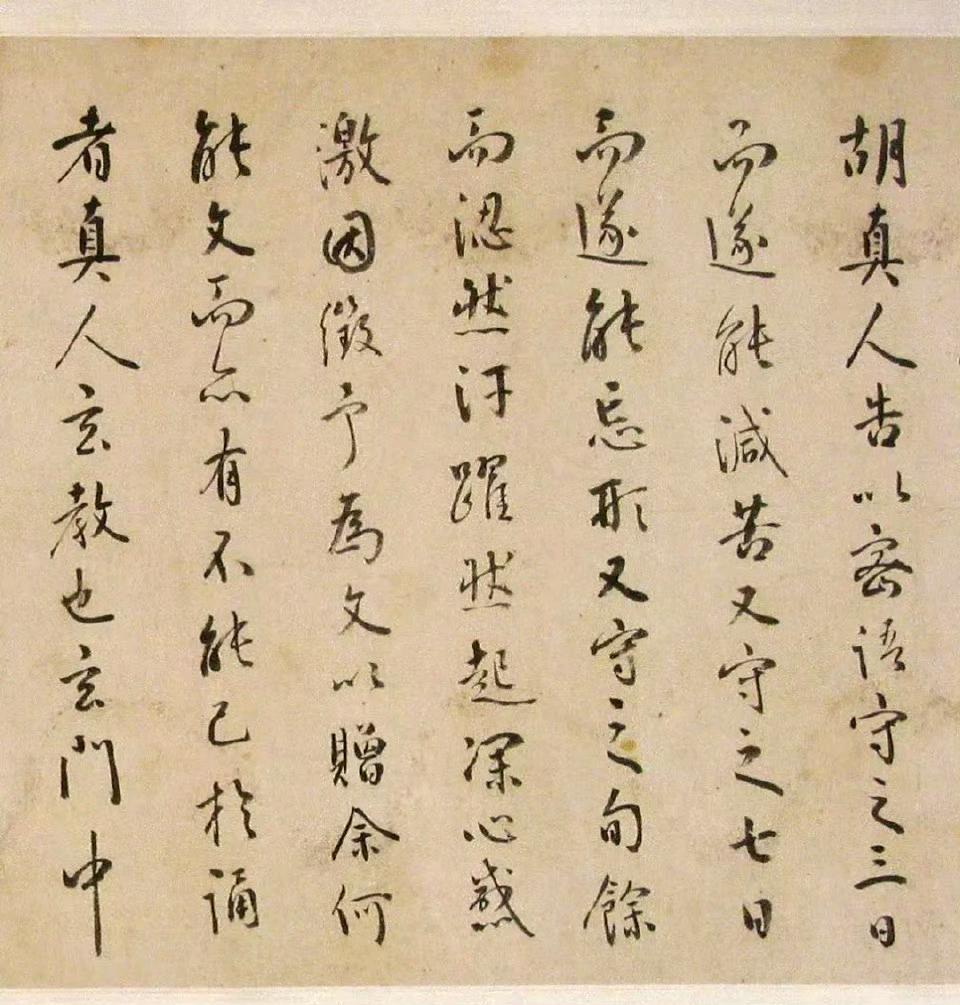 胡真人告以密語守之三日
而遂能減苦又守之七日
而遂能忘形又守之旬餘
而涊然汗躍然起深心感
激因徵予為文以贈余何
能文而亦有不能已於誦
者真人玄教也玄門中